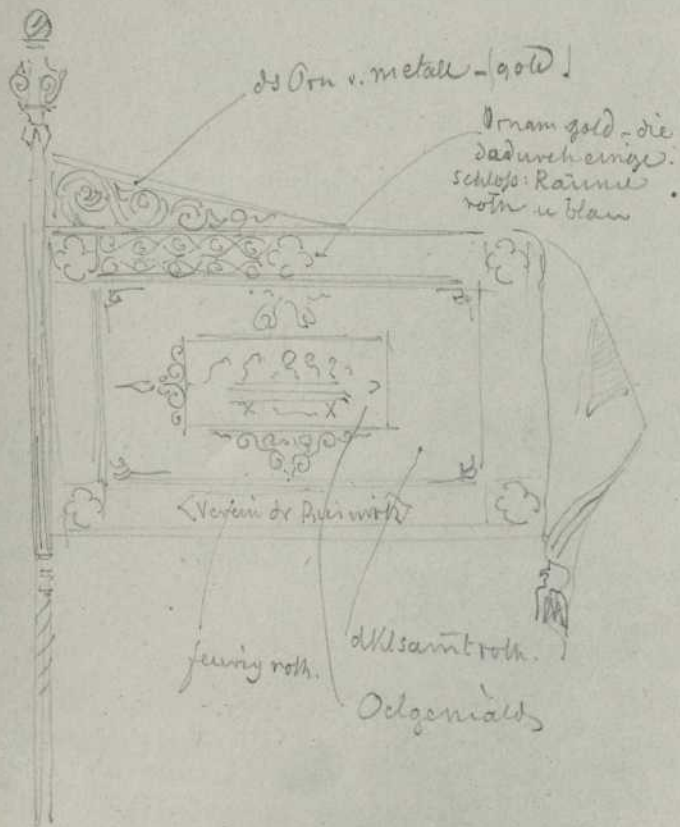 ds Orn v. metall - gold!
Ornam gold - die
dadurch einge:
schloß: Räume
roth u blau
Verein dr
feurig roth.
dklsamtroth.
Oelgemälds